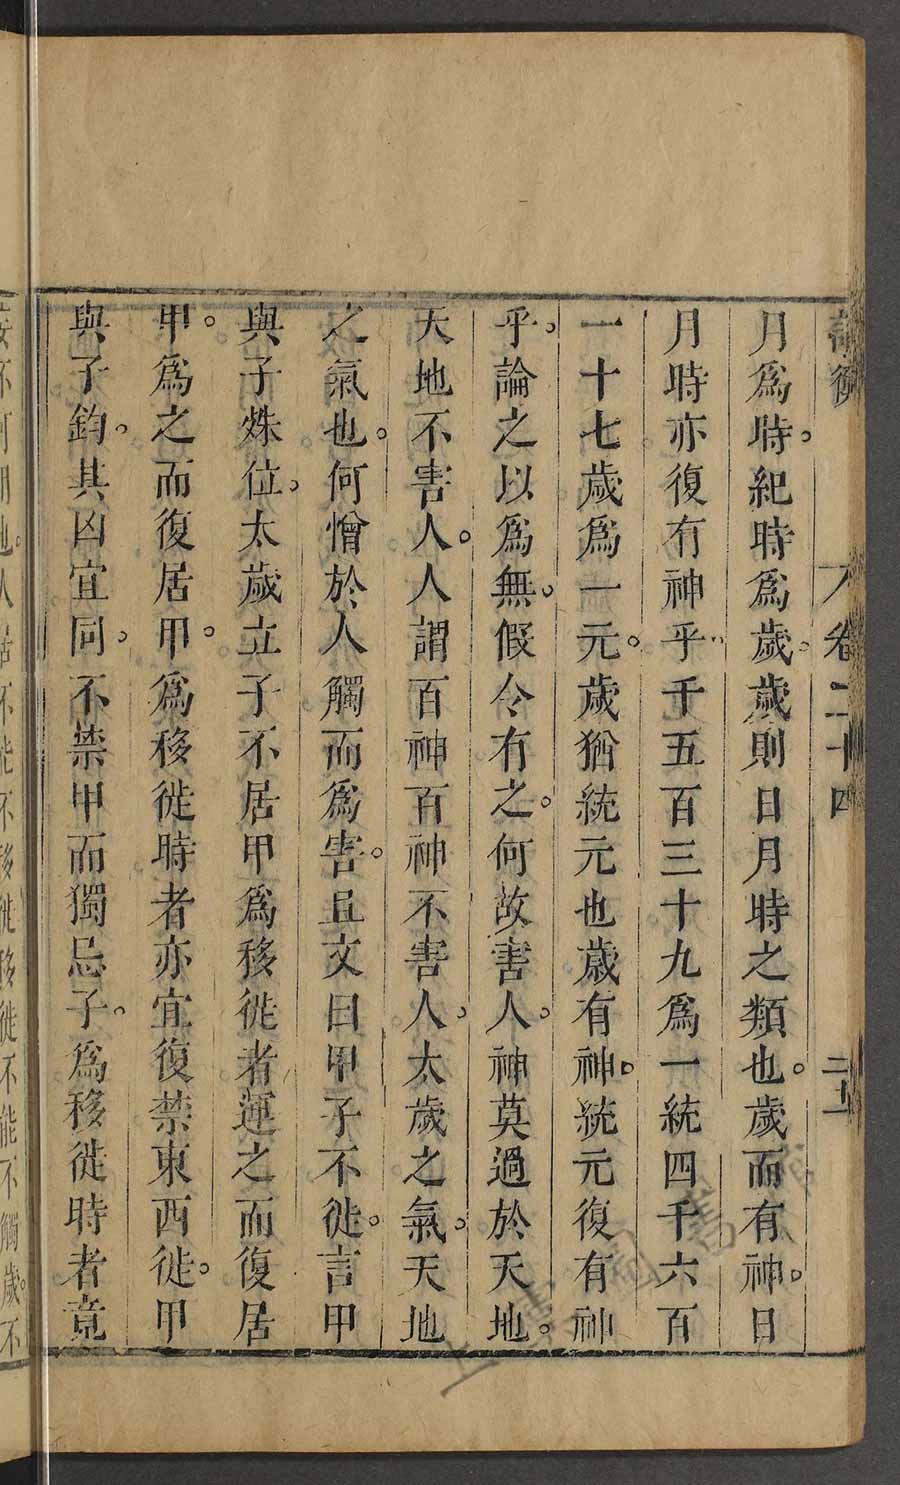 論衡 卷二十四 二十一
月爲時。紀時爲歲。歲則日月時之類也。歲而有神。日
月時亦復有神乎。千五百三十九爲一統四千六百
一十七歲爲一元。歲猶統元也歲有神。統元復有神
乎。論之以爲無。假令有之。何故害人。神莫過於天地。
天地不害人。人謂百神百神不害人。太歲之氣。天地
之氣也。何憎於人觸而爲害。且文曰甲子不徙。言甲
與子殊位。太歲立子不居甲爲移徙者運之而復居
甲。爲之而復居甲。爲移徙時者亦宜復禁東西徙。甲
與子鈞。其凶宜同。不禁甲而獨忌子。爲移徙時者竟
安不可用也。人居不能不移徙移徙不能不觸歲。不